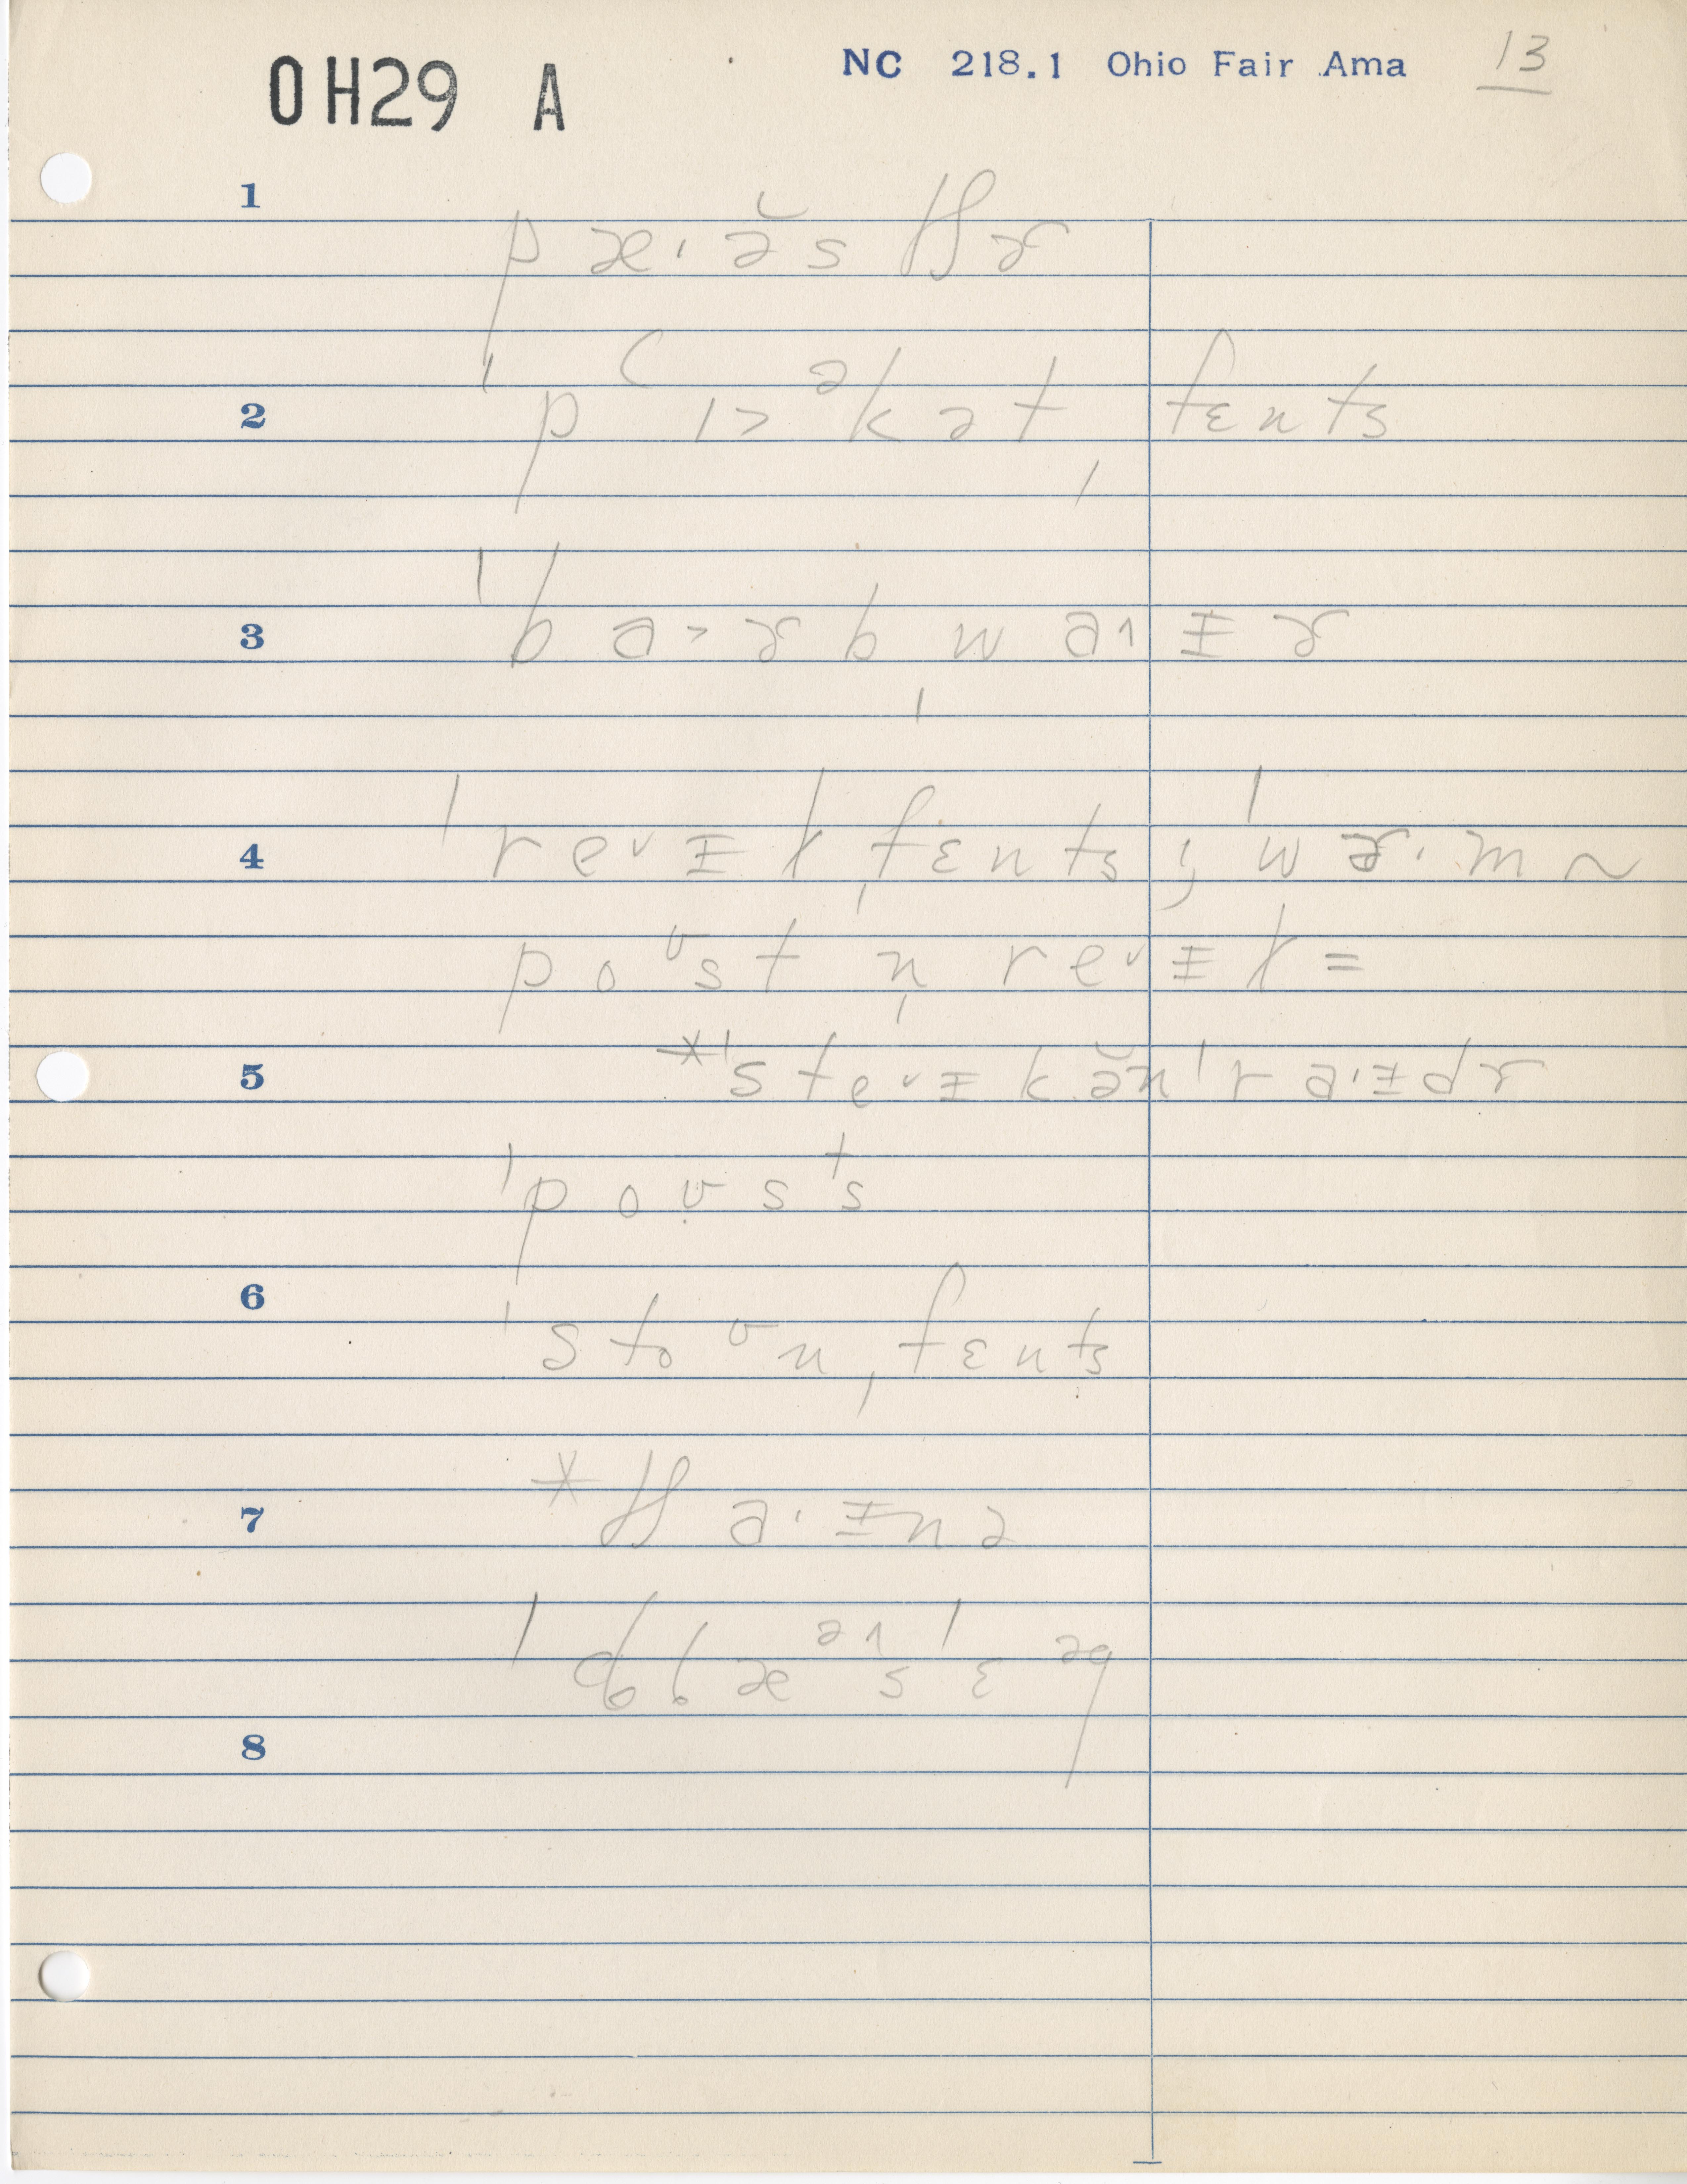 OH29 A NC 218.1 Ohio Fair Ama 13
1
pæ·ə̆sʧɚ
2 ˈpɪ>ᵊkət ˌfɛnts
3 ˈbɑ˃ɚbwa˄ɪɚ
4 ˈre˅ɪl ˌfɛnts; ˈwɚ·m ~
poᶷst n̩ re˅ɪl =
5 *ˈste˅ɪkə̆n ˈra·ɪdɚ
ˈpoʊsᵗs
6
ˈstoᶷn ˌfɛnts
7 *ʧa·ɪnə
8